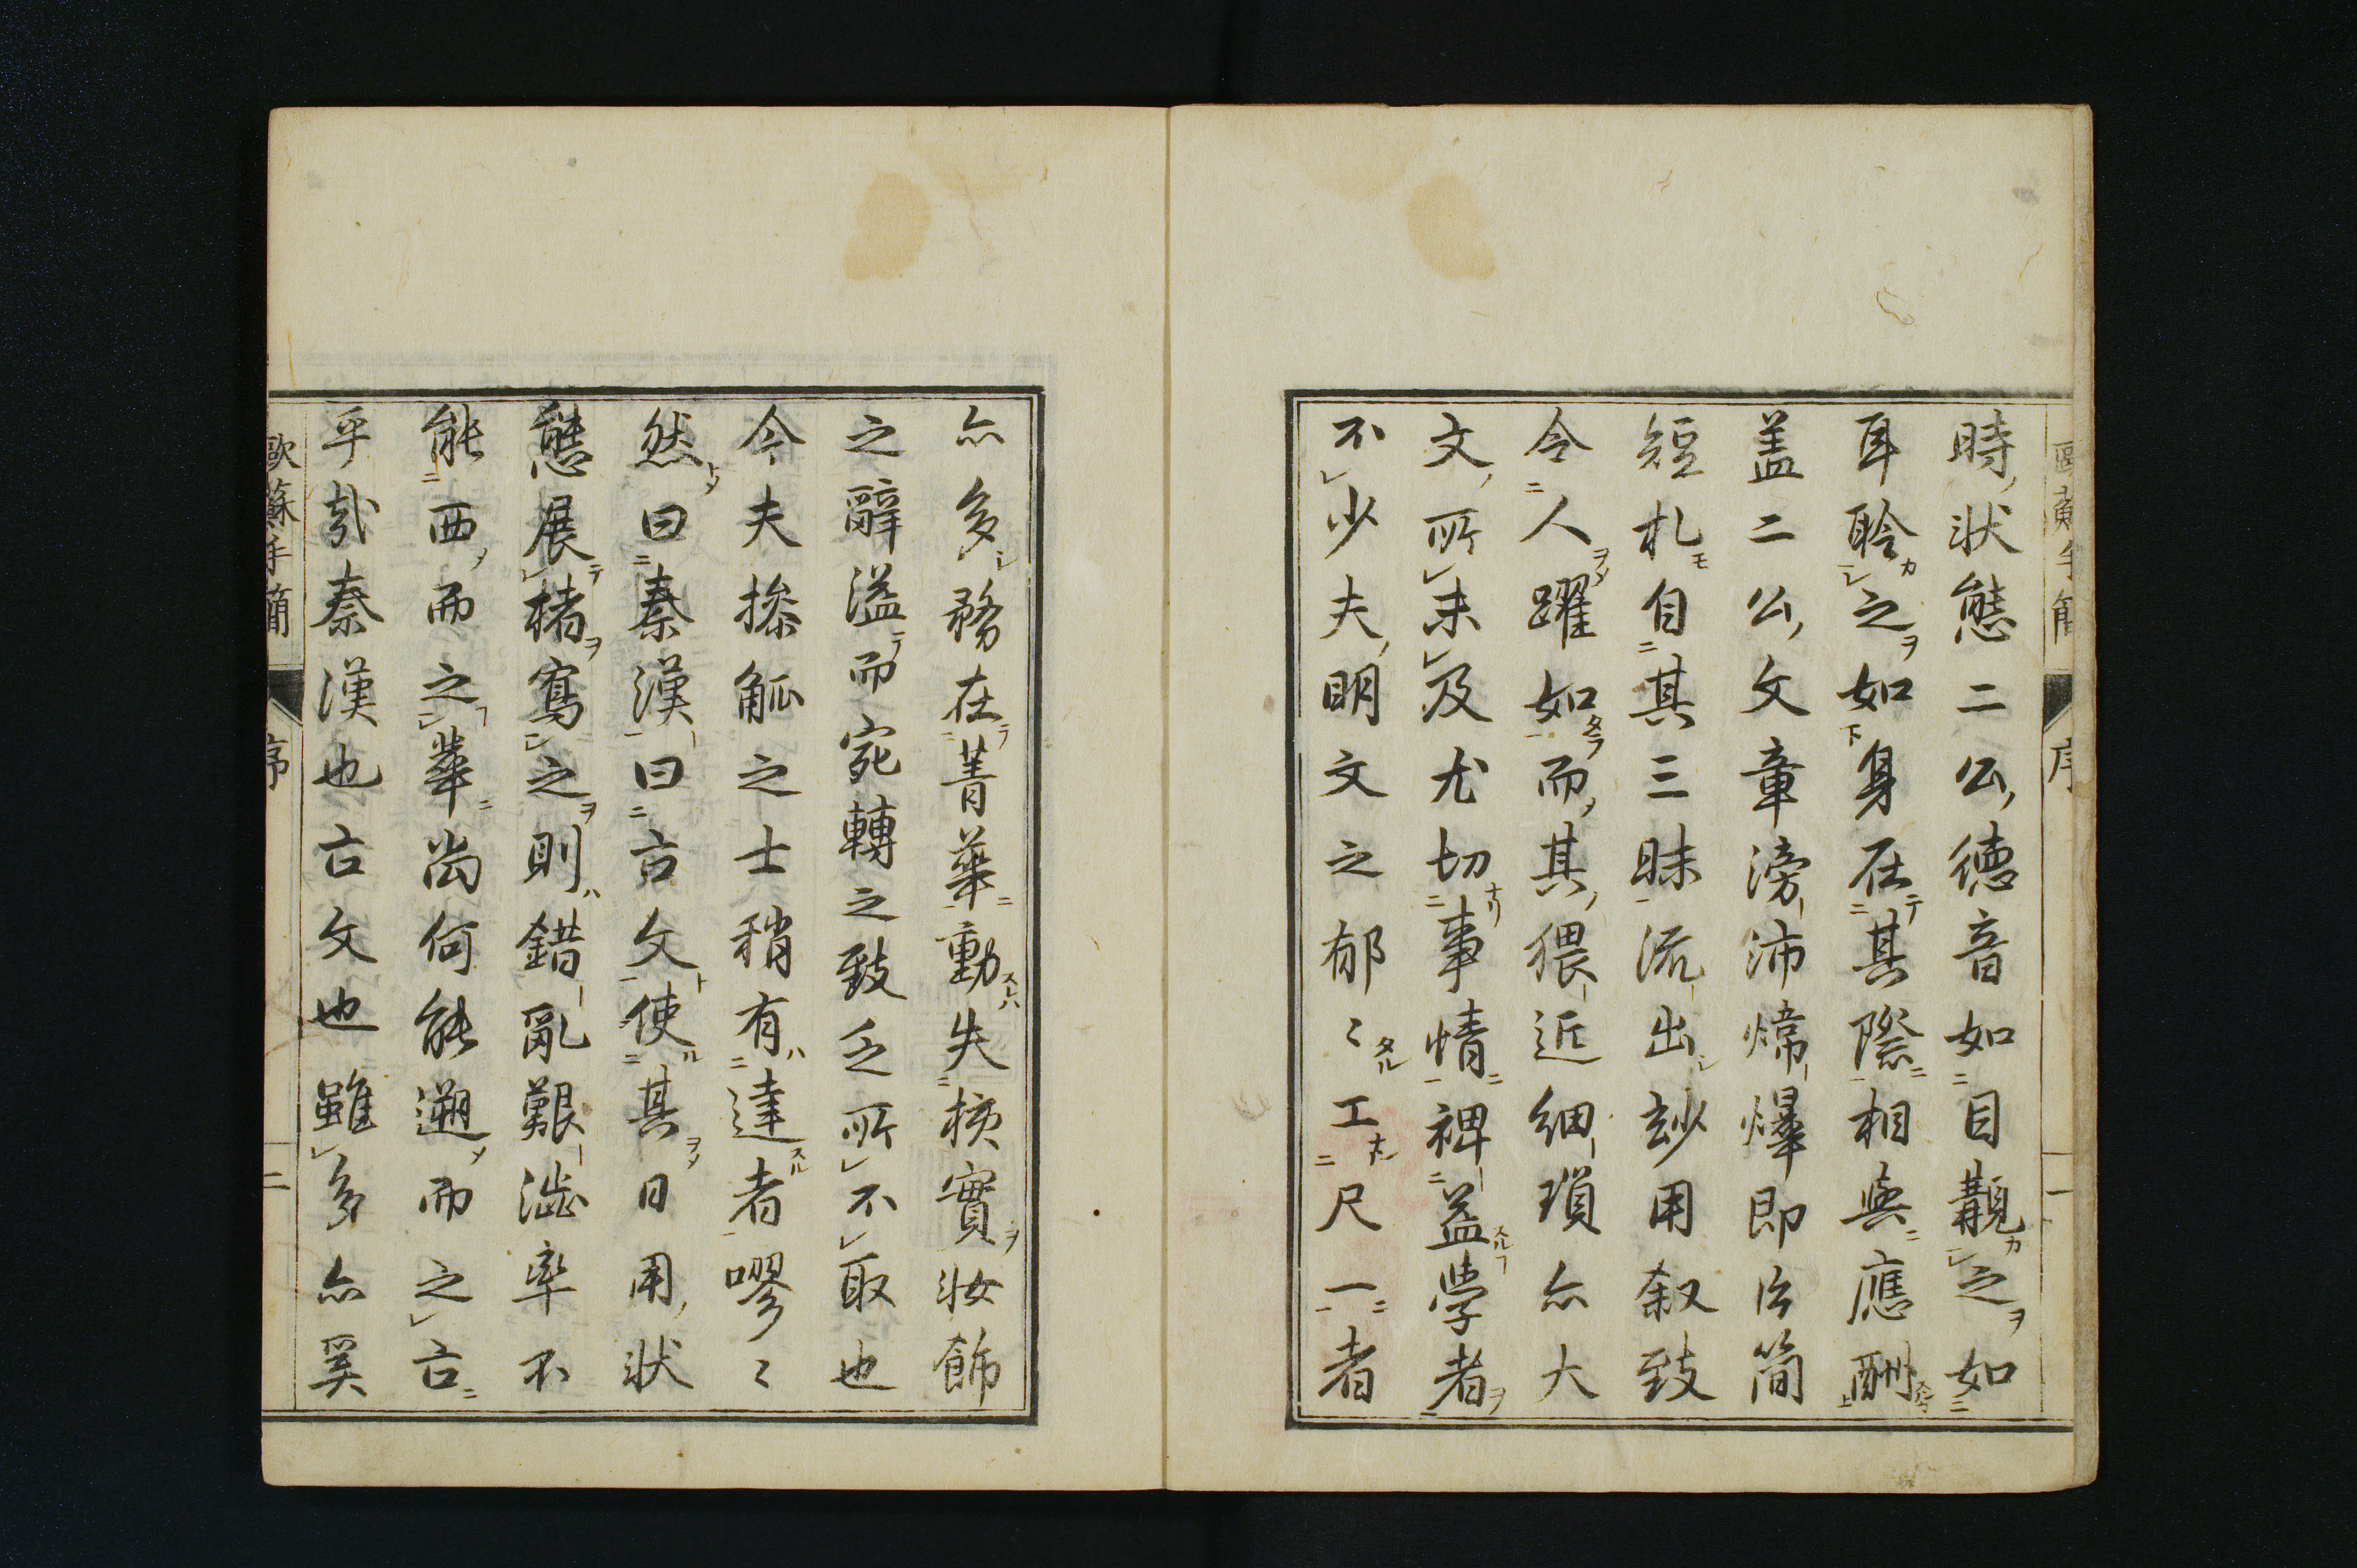 歐蘇手簡
序
一
時狀態二公德音如目覯之如
耳聆之如身在其際相與應酬
盖二公文章滂沛煒爆即片簡
短札自其三昧流出玅用叙致
令人躍如而其猥近細瑣亦大
文所未及尤切事情裨益學者
不少夫明文之郁〻工尺一者
亦多務在菁華動失核實妝飾
之辭溢而宛轉之致乏所不取也
今夫操觚之士稍有達者嘐〻
然曰秦漢曰古文使其日用狀
態展楮寫之則錯亂艱澁率不
能西而之華尚何能遡而之古
乎哉秦漢也古文也雖多亦奚
歐蘇手簡
序
二